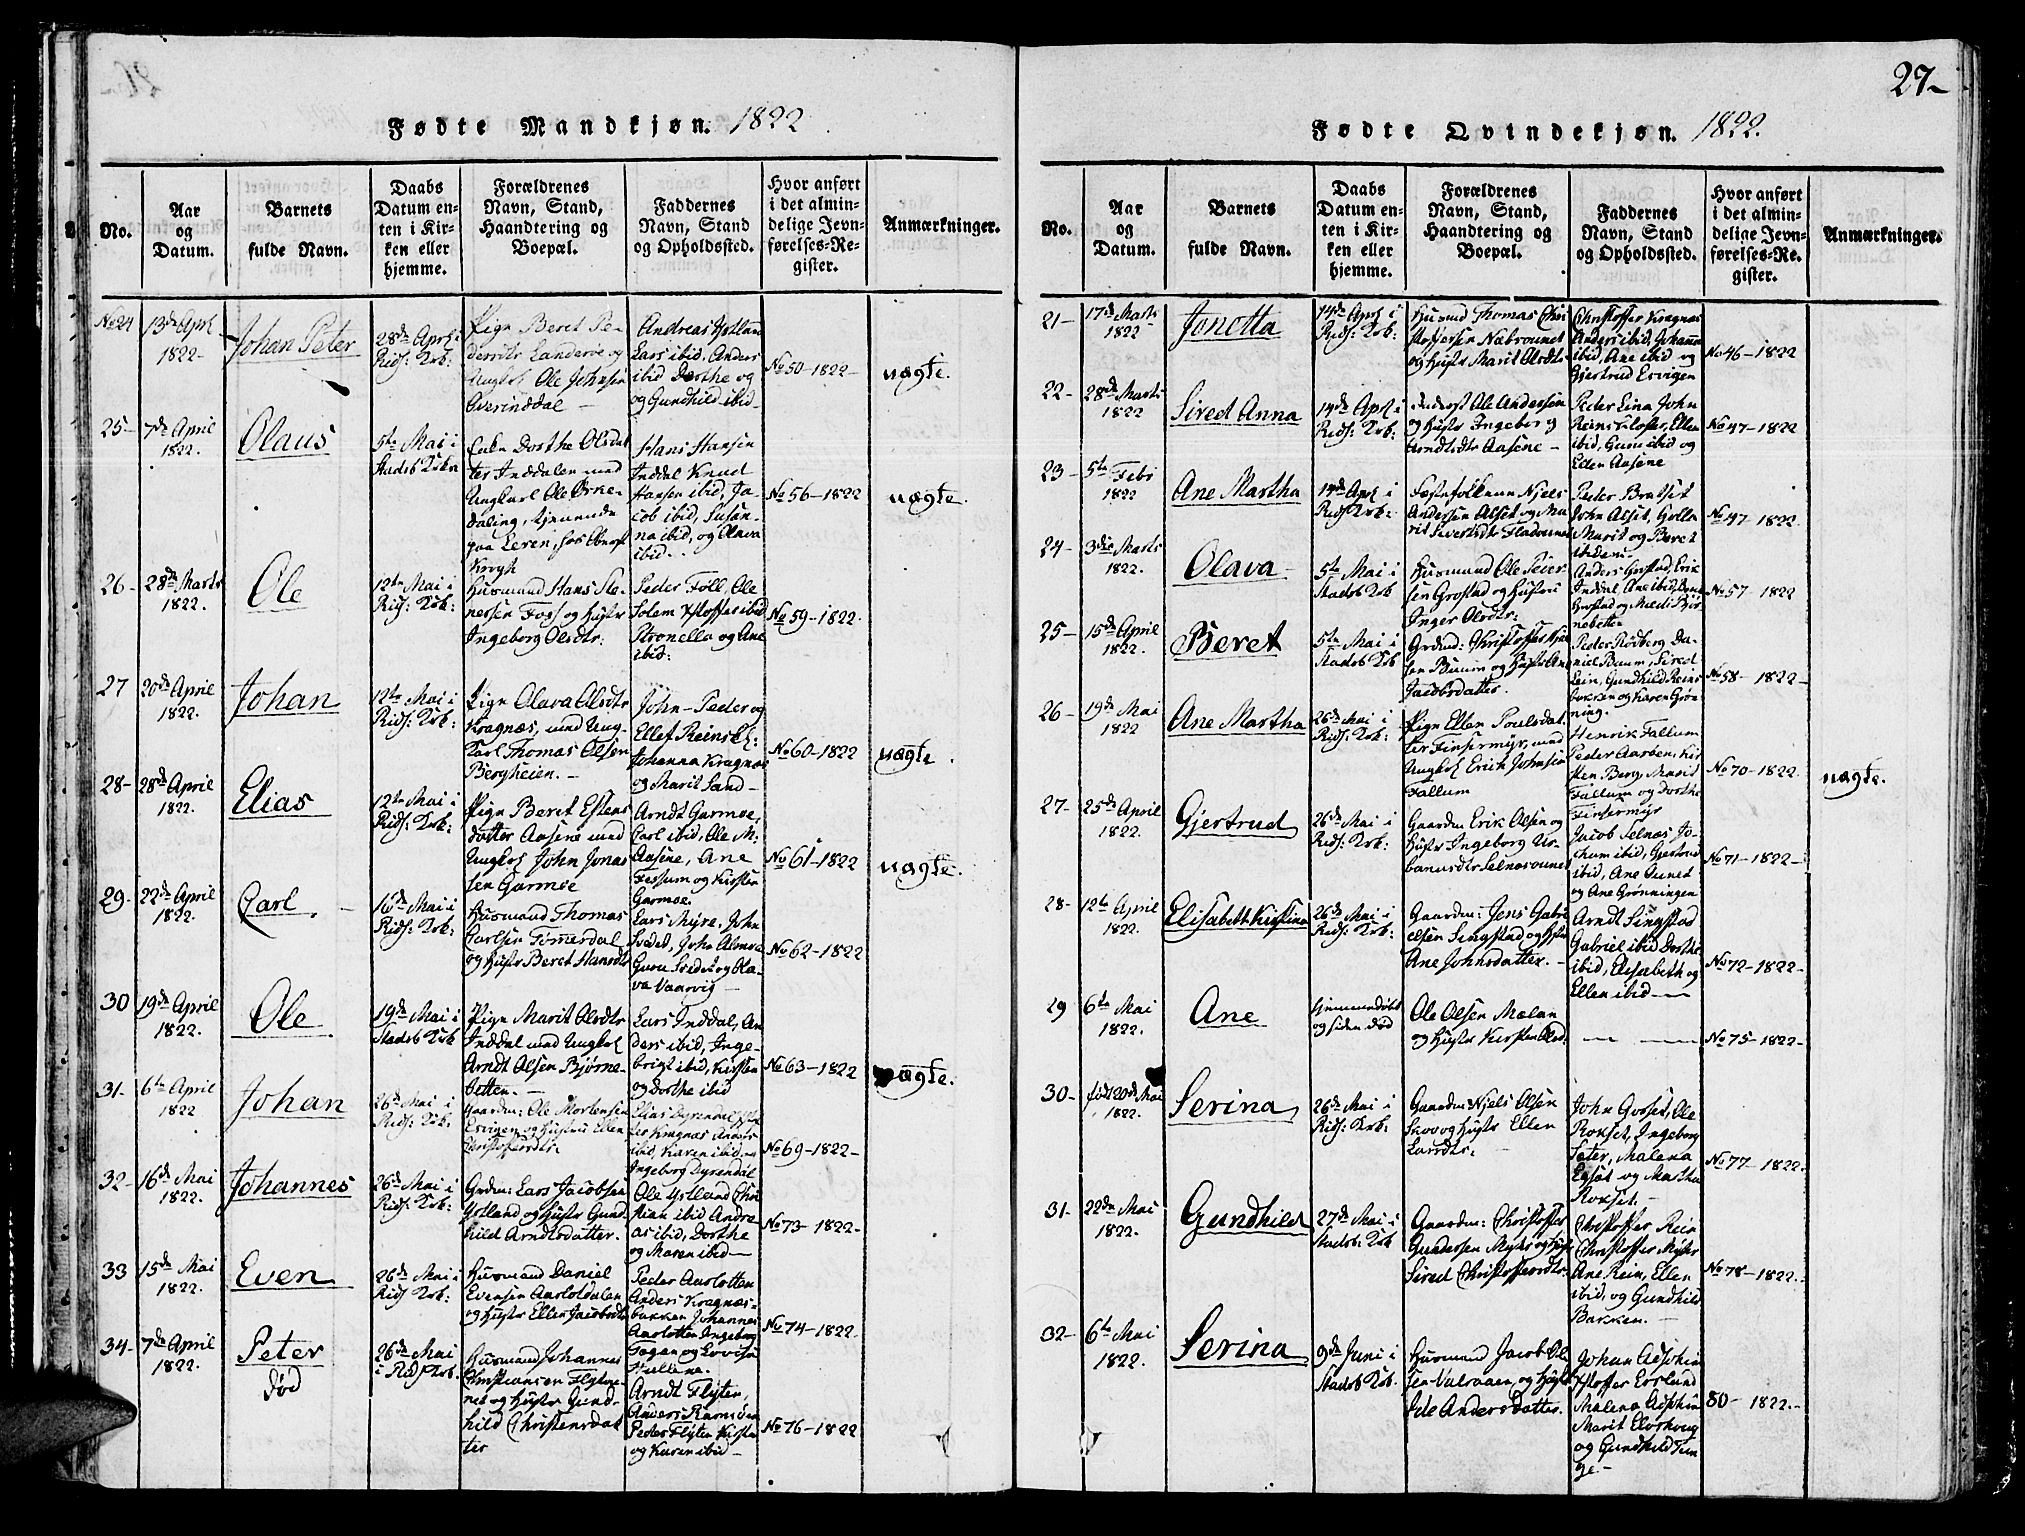 27-
Fødte Mandkjøn. 1822
No.
Aar
og
Datum.
Barnets
fulde Navn.
Daabs
Datum en-
ten i Kir-
ken eller
hjemme.
Forældrenes
Navn, Stand,
Haandtering og
Boepæl.
Faddernes
Navn, Stand
og Opholdssted.
Hvor anført
i det almin-
delige Jevn-
førelses-Re-
gister.
Anmærkninger.
No 24
13de Aprl
1822-
Johan Peter
28de Aprl i
Rids: Krk:
Pign Beret Pe-
Ungkol Ole Johnsen
Overinddal
Andreas Ystland
Lars ibid, Anders
ibid Dorthe og
og Gundhild ibid
No 50-1822-
uægte.
25-
7de April
1822.
Olaus
5te Mai i
Stadsb Krkn
Enken Dorthe Olsdat
ter Inddalen med
Ungkarl Ole Orke-
daling, tjenende
paa Leren, hos Oberst
Krogh
Hans Hansen
Inddal Knud
Hansen ibid, Ja-
cob ibid, Susan-
na ibid, og Olava
ibid.
No 56-1822
uægte.
26-
28de Marts
1822.
Ole
12te Mai i
Rids: Krk:
Husmand Hans Ste-
nersen Fogs og Hustr
Ingeborg Olsdtr:
Peder Foll, Ole
Solem Kstoffer ibid
Stronella og Ane
ibid:
No 59-1822.
27
20de April
1822.
Johan
12te Mai i
Rids: Krk:
Pign Olava Olsdtr
Kragnæs, med Ung-
Karl Thomas Olsen
Bergheien.-
John- Peder og
Ellef Reinskl:
Johanna Kragnæs
og Marit Sand-
No 60-1822
uægte.
28-
28de April
1822.
Elias
12te Mai i
Rids: Krk:
Pign Beret Estens
datter Aasene med
Ungkol John Jonas
sen Garmoe
Arndt Garmoe,
Carl ibid, Ole M:
Aasene, Ane
Fessum og Kirsten
Garmoe.
No 61-1822
uægte.
29-
22de April
1822.
Carl.
16de Mai i
Rids: Krk:
Husmand Thomas
Carlsen Tømmerdal
og Hustr Beret Hansdtr
Lars Myre, John
Svedet, John Almvei
Guru Svedet og Ola-
va Vaarvig-
No 62-1822
30
19de April
1822.
Ole
19de Mai i
Stadsb Krk
Pign Marit Olsdtr
Inddal med Ungkol
Arndt Olsen Bjørne-
betten.-
Lars Inddal, An
ders ibid, Inge-
brigt ibid, Kirsten
og Dorthe ibid
No 63-1822
uægte.
31-
6te April
1822
Johan
26de Mai i
Rids: Krk:
Gaardm: Ole Mortensen
Esvigen og Hustru Ellen
Christoffersdtr:
Elias Dyrendal
Kragnæs Anders
ibid, Karen ibid, og
Ingeborg Dyrendal
No 69-1822-
32-
16de Mai
1822.
Johannes
26de Mai i
Rids: Krk:
Grdm: Lars Jacobsen
Ystland og Hustr Gund
hild Arndtsdatter.
Ole Ystland Chri
stian ibid Andre
as ibid, Dorthe
og Maren ibid-
No 73-1822-
33
15de Mai
1822.
Even
26de Mai i
Rids Krk:
Husmand Daniel
Evensen Aarlotdalen
og Hustr Ellen Jacobsdtr
Peder Aarlotten
Anders Kragnæs-
bakken Johannes
Aarlotten Ingeborg
Gagan og Lovise
No 74-1822.
34-
7de April
1822.
Peter
død
26de Mai
i Rids Krk.
Husmand Johannes
Christiansen Flyten-
nes og Hustr Gund-
hild Christensdat
ter
Arndt Flyten,
Anders Ramsøen
Peder Flyten Kirsten
og Karen ibid-
No 76-1822
Fødte Qvindekjøn. 1822.
No.
Aar
og
Datum.
Barnets
fulde Navn.
Daabs
Datum en-
ten i Kir-
ken eller
hjemme.
Forældrenes
Navn, Stand,
Haandtering og
Boepæl.
Faddernes
Navn, Stand
og Opholdssted.
Hvor anført
i det almin-
delige Jevn-
førelses-Re-
gister.
Anmærkninger.
21-
17de Marts
1822
Jonetta
14de Aprl i
Rids: Krk:
Husmd Thomas Chri
stofersen Næbrounet
og Hustr Marit Olsdtr
Christoffer Kragnæs
Anders ibid, Johanna
ibid, Ane ibid og
Gjertrud Esvigen
No 46-1822
22-
28de Marts
1822
Sired Anna
14de Aprl i
Rids: Krk:
Inderst Ole Andersen
og Hustr Ingeborg
Arndtsdtr Aasene-
Peder Lina John
Reinskloster, Ellen
ibid, Guru ibid og
Ellen Aasene
No 47-1822
23-
5te Febr
1822
Ane Martha
14de Aprl i
Rids Krk:
Fæstefolkene Njels
Andersen Alset og Ma
rit Sivertsdtr Fladounet
Peder Bratset
John Alset,
Marit og Beret
ibidem.
No 47-1822
24-
3die Marts
1822.
Olava
5te Mai i
Stadsb Krk
Husmand Ole Peder
sen Grostad og Hustru
Inger Olsdtr:
Anders Grostad, Erik
Inddal, Ane ibid,
Grostad og Meedi Bjør
nebetten
No 57-1822
25-
15de April
1822.
Beret
5te Mai i
Stadsb Krk
Grdmd: Christoffer
sen Buum og Hustr Ane
Jacobsdatter.
Peder Rødberg Da-
niel Buum, Sired
Lein, Gundhild Reins
bakken og Karen Grøn-
ning.
No 58-1822-
26-
19de Mai
1822
Ane Martha
26de Mai i
Rids: Krk:
Pign Ellen Poulsdat
ter Finsermyr, med
Ungkol Erich Johnsen
Fallum
Henrik Fallum
Peder Aarben, Kir
sten Berg, Marit
Fallum og Dorthe
Finsermyr
No 70-1822.
uægte.
27-
25de April
1822.
Gjertrud
26de Mai i
Rids: Krk:
Gaardm: Erik Olsen og
Hustr Ingeborg Ur-
banusdtr Selnæsounet
Jacob Selnæs Jo-
chum ibid, Gjertrud
ibid, Ane Aunet
og Ane Grønningen
No 71-1822-
28-
12te April
1822.
Elisabeth Kirstina
26de Mai i
Rids: Krk:
Gaardm: Jens Gabri
elsen Singstad og Hustr
Ane Johnsdatter.-
Arndt Singstad
Gabriel ibid Dorthe
ibid, Elisabeth og
Ellen ibid-
No 72-1822-
29
6te Mai
1822.
Ane
Hjemmedøbt
og siden død
Ole Olsen Mælan
og Hustr Kirsten Olsd.
No 75-1822-
30-
født 20de Mai
1822.
Serina
26de Mai i
Rids: Krk:
Gaardm: Njels Olsen
Skov og Hustr Ellen
Larsdtr:
John Gorset, Ole
Rokset, Ingeborg
Seter, Malena
og Martha
Rokset.-
No 77-1822.
31-
22de Mai
1822.
Gundhild
27de Mai i
Stadsb: Krk
Gaardm: Christoffer
Gundersen Myhr og Hustr
Sired Christoffersdtr:
Christoffer Rein
Christoffer Myhr
Ane Rein, Ellen
ibid, og Gundhild
Bakken.-
No 78-1822.
32-
6te Mai
1822.
Serina
9de Juni i
Stadsb Krk.
Husmand Jacob Ol-
sen Valvaaen og Hustr
Ide Andersdatter.
Johan
Malena
Marit
og Gundhild Tun
ge.-
80- 1822.-